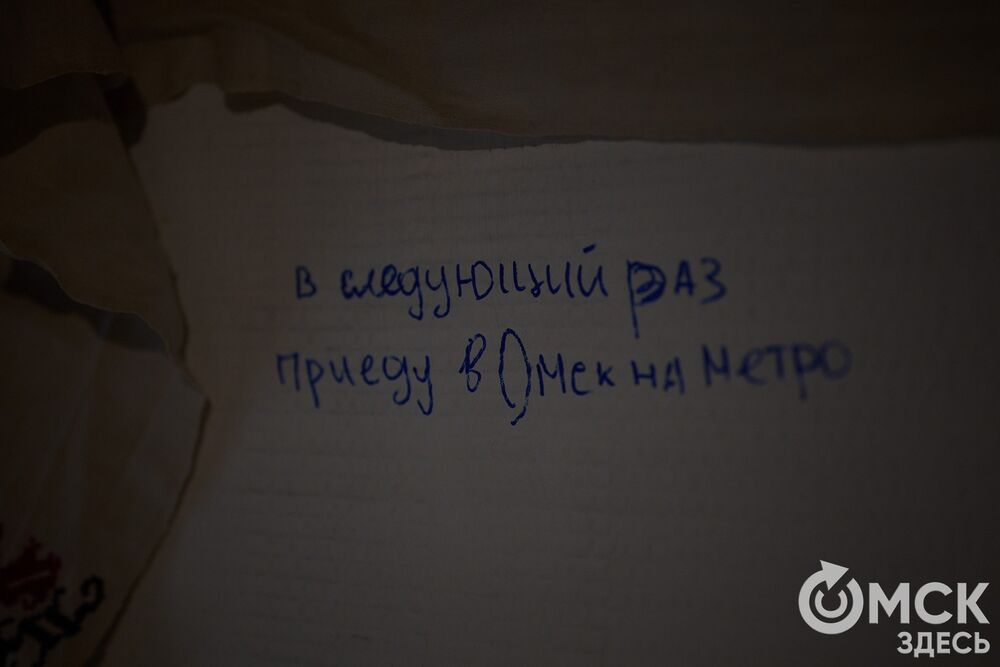 в следующий раз
приеду в Омск на метро
ОМСК
ЗДЕСЬ